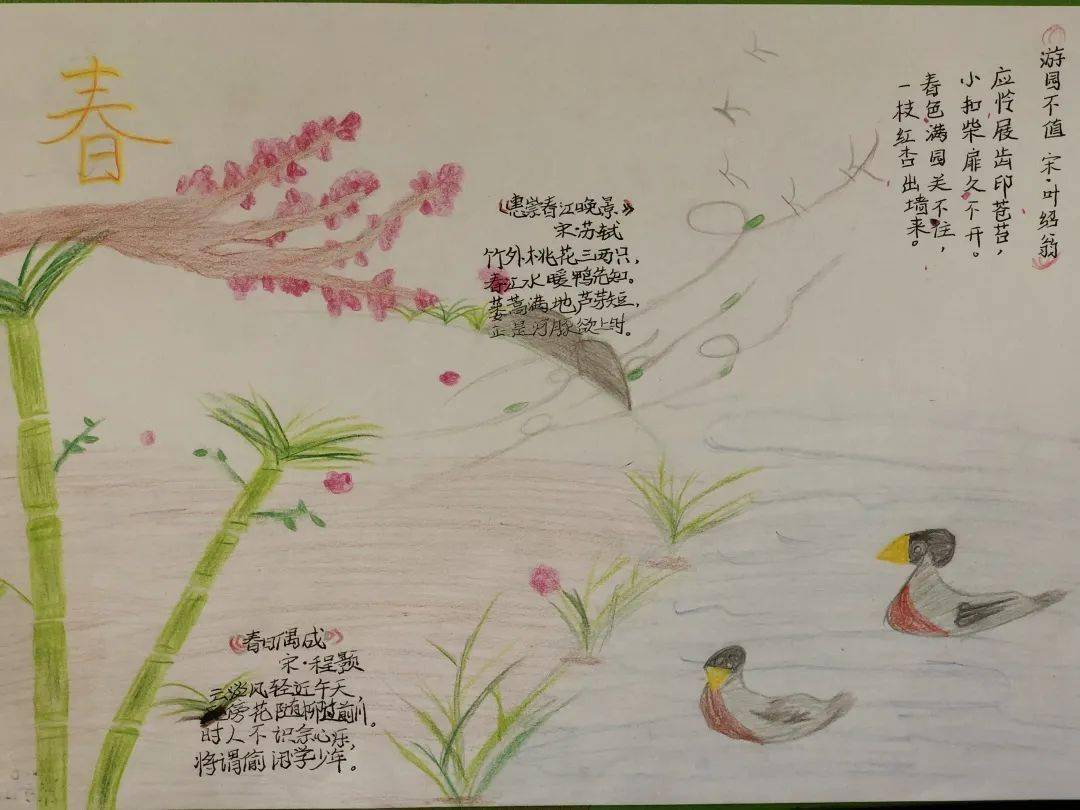 春
《游园不值 宋·叶绍翁》
应怜屐齿印苍苔,
小扣柴扉久不开。
春色满园关不住,
一枝红杏出墙来。
《惠崇春江晚景》
宋·苏轼
竹外桃花三两只,
春江水暖鸭先知。
蒌蒿满地芦芽短,
正是河豚欲上时。
《春日偶成》
宋·程颢
云淡风轻近午天,
傍花随柳过前川。
时人不识余心乐,
将谓偷闲学少年。